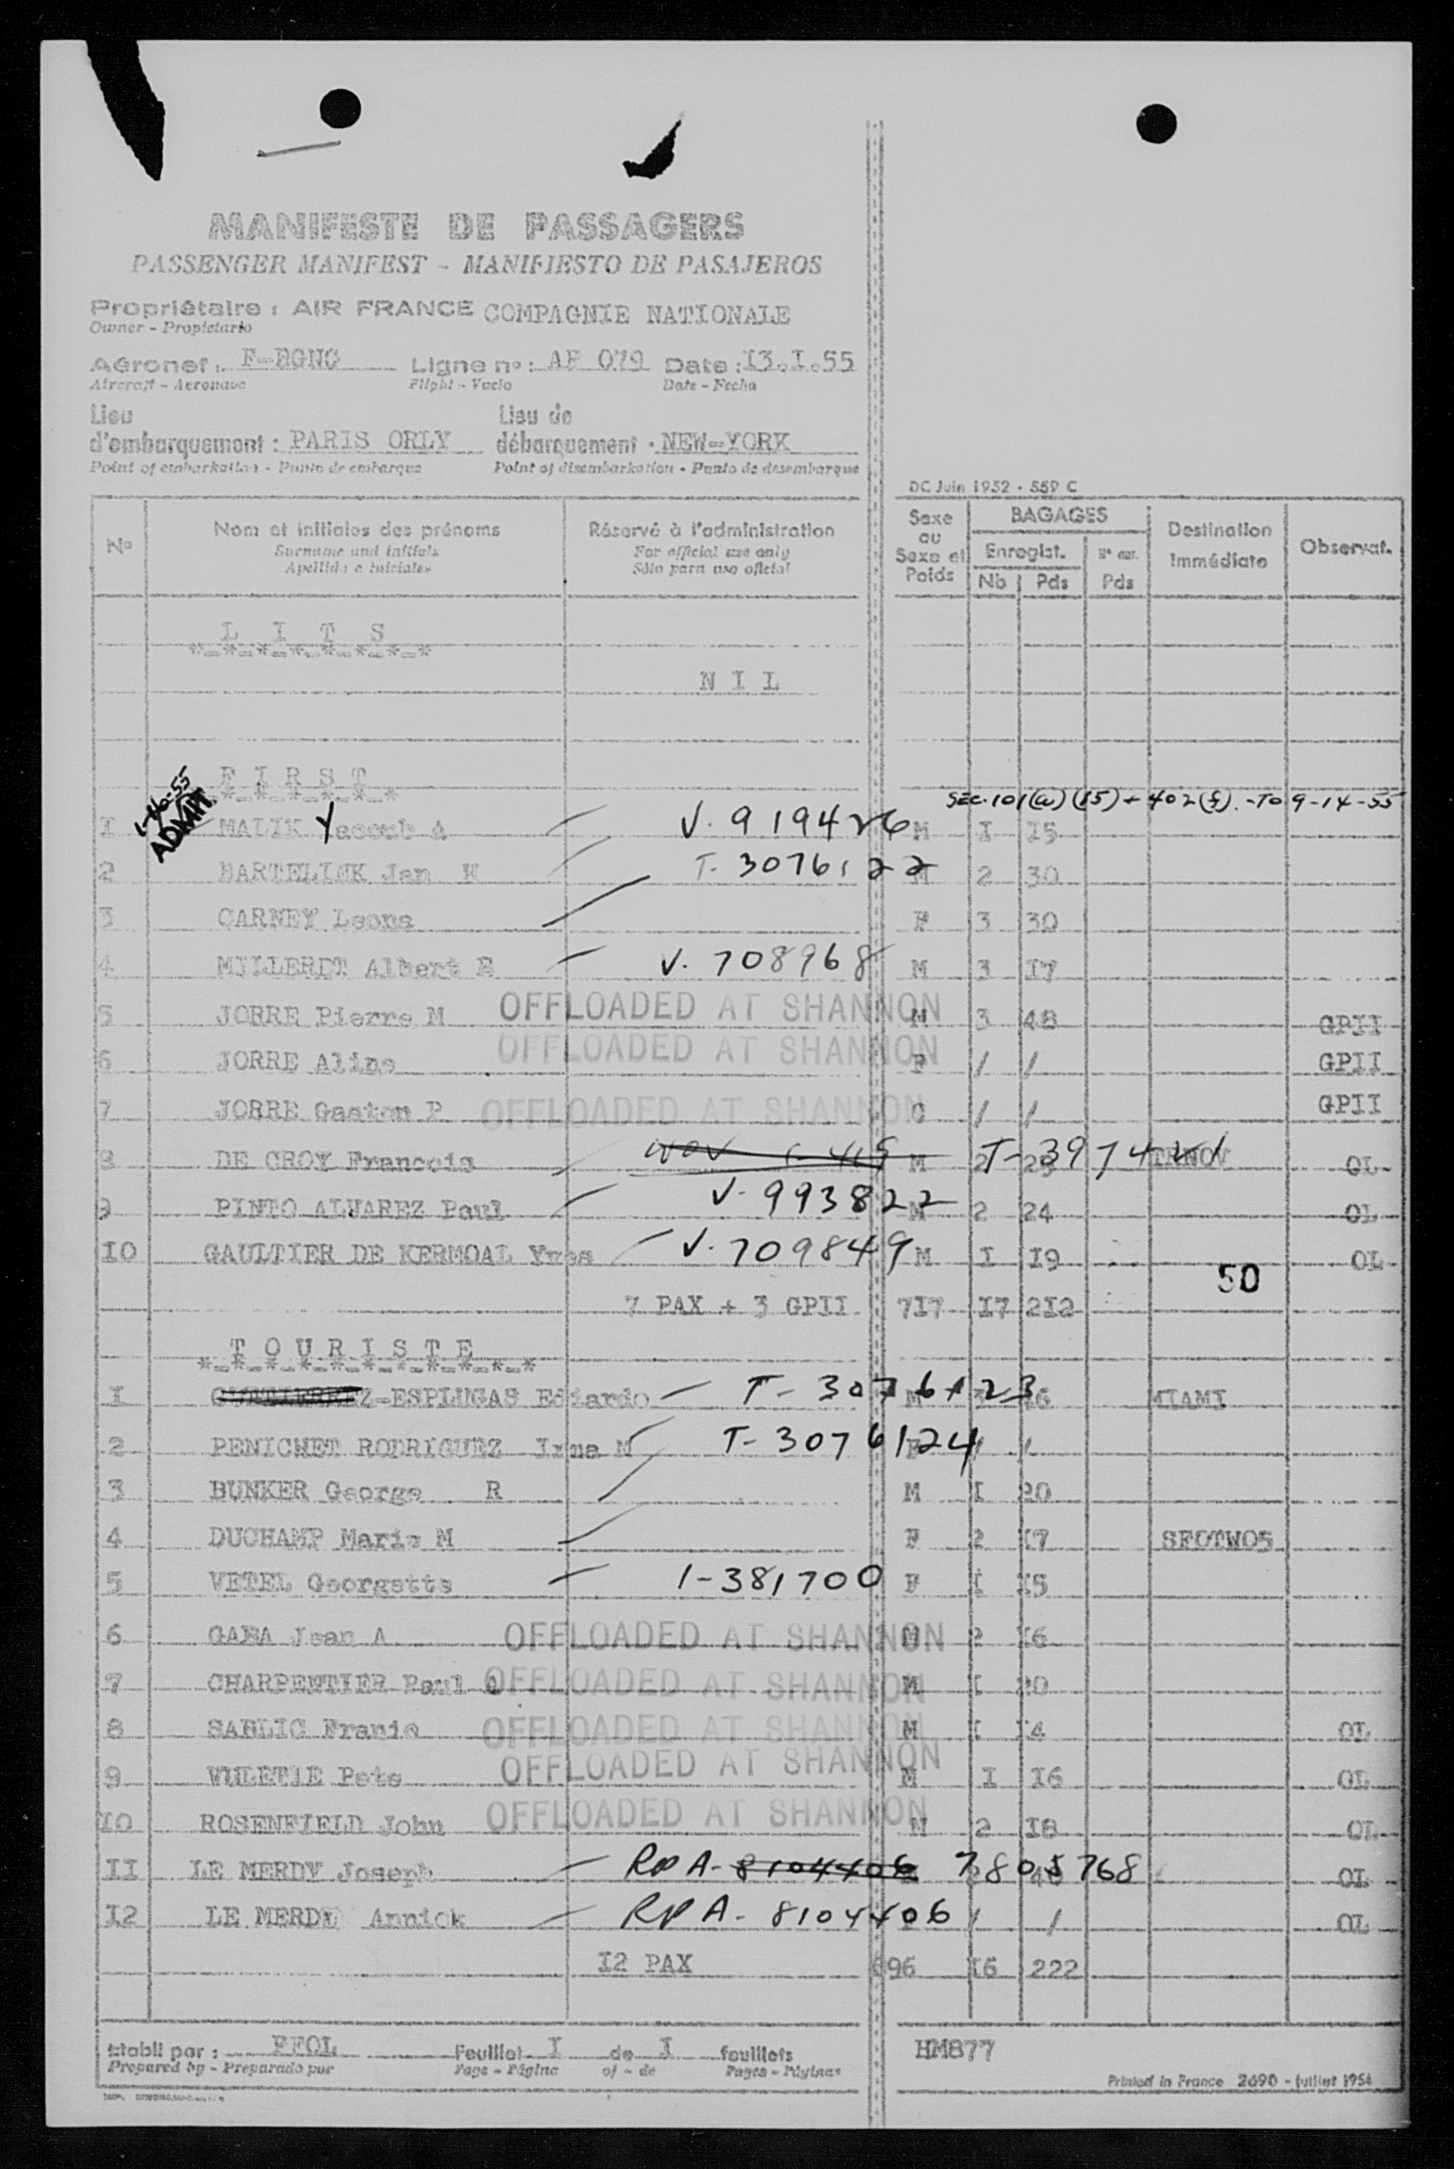 MANIFESTE DE PASSAGERS
PASSENGER MANIFEST - MANIFIESTO DE PASAJEROS
Propriétaire : AIR FRANCE COMPAGNIE NATIONALE
Owner - Propietario
Aéronef : F-BGNG Ligne n° : AF 079 Date : I3.I.55
Aircraft - Aeronave Flight - Vuelo Date - Fecha
Lieu d'embarquement : PARIS ORLY Lieu de débarquement : NEW-YORK
Point of embarkation - Punto de embarque Point of disembarkation - Punto de desembarque
DC Juin 1952 - 559 C
N° Nom et initiales des prénoms Réservé à l'administration Sexe ou Sexe et Poids BAGAGES Destination Immédiate Observat.
Surname and initials For official use only Enregist.
Apellido e iniciales Sólo para uso oficial Nb Pds Pds
L I T S
*-*-*-*-*-*-*-*
N I L
F I R S T
*-*-*-*-*-*
1-16-55 ADMIT SEC. 101(a)(15) + 402(f). - TO 9-14-55
I MALIK Yacoub A V. 919426 M I I5
2 BARTELINK Jan H T- 3076122 M 2 30
3 CARNEY Leona F 3 30
4 MILLERET Albert E V. 708968 M 3 I7
5 JORRE Pierre M OFFLOADED AT SHANNON M 3 48 GPII
6 JORRE Aline OFFLOADED AT SHANNON F / / GPII
7 JORRE Gaston P OFFLOADED AT SHANNON C / / GPII
8 DE CROY Francois M 2 T-397421 TRNOV OL
9 PINTO ALVAREZ Paul V- 993822 M 2 24 OL
IO GAULTIER DE KERMOAL Yves V. 709849 M I I9 OL
50
7 PAX + 3 GPII 7I7 I7 2I2
T O U R I S T E
*-*-*-*-*-*-*-*-*-*-*
I -ESPLUGAS Eduardo T- 3076123 M MIAMI
2 PENICHET RODRIGUEZ Irma M T- 3076124 F / /
3 BUNKER George R M I 20
4 DUCHAMP Marie M F 2 I7 SFOTW05
5 VETEL Georgette 1-381700 F I I5
6 GABA Jean A OFFLOADED AT SHANNON M 2 I6
7 CHARPENTIER Paul OFFLOADED AT SHANNON M I 20
8 SABLIC Franie OFFLOADED AT SHANNON M I I4 OL
9 VULETIE Pete OFFLOADED AT SHANNON M I I6 OL
IO ROSENFIELD John OFFLOADED AT SHANNON M 2 I8 OL
II LE MERDY Joseph RP A- 8104406 7805768 OL
I2 LE MERDY Annick RP A- 8104406 / / OL
I2 PAX 896 I6 222
Etabli par : FFOL Feuillet I de I feuillets HM877
Prepared by - Preparado por Page - Página of - de Pages - Páginas
Printed in France 2690 - juillet 1954